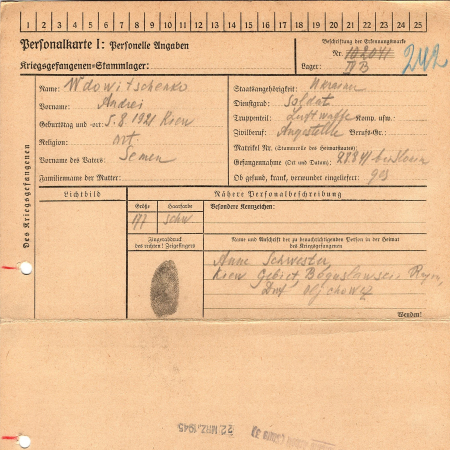 1 2 3 4 5 6 7 8 9 10 11 12 13 14 15 16 17 18 19 20 21 22 23 24 25
Personalkarte I: Personelle Angaben
Beschriftung der Erkennungsmarke
Nr. 102041
242
Kriegsgefangenen-Stammlager:
Lager: IV B
Des Kriegsgefangenen
Name: Wdowitschenko
Staatsangehörigkeit: Ukraine
Vorname: Andrei
Dienstgrad: Soldat
Truppenteil: Luftwaffe Komp. usw.:
Geburtstag und -ort: 5.8.1921 Kiew
Zivilberuf: Angestellte Berufs-Gr.:
Religion: ort.
Matrikel Nr. (Stammrolle des Heimatstaates):
Vorname des Vaters: Semen
Gefangennahme (Ort und Datum): 28841 bei
Familienname der Mutter:
Ob gesund, krank, verwundet eingeliefert: ges
Lichtbild
Nähere Personalbeschreibung
Größe
Haarfarbe
Besondere Kennzeichen:
177
schw.
Fingerabdruck
des rechten! Zeigefingers
Name und Anschrift der zu benachrichtigenden Person in der Heimat
des Kriegsgefangenen
Anne Schwester,
Kiew Gebiet, Boguslawski Rayon,
Dorf Olschowez
Wenden!
22. MRZ. 1945